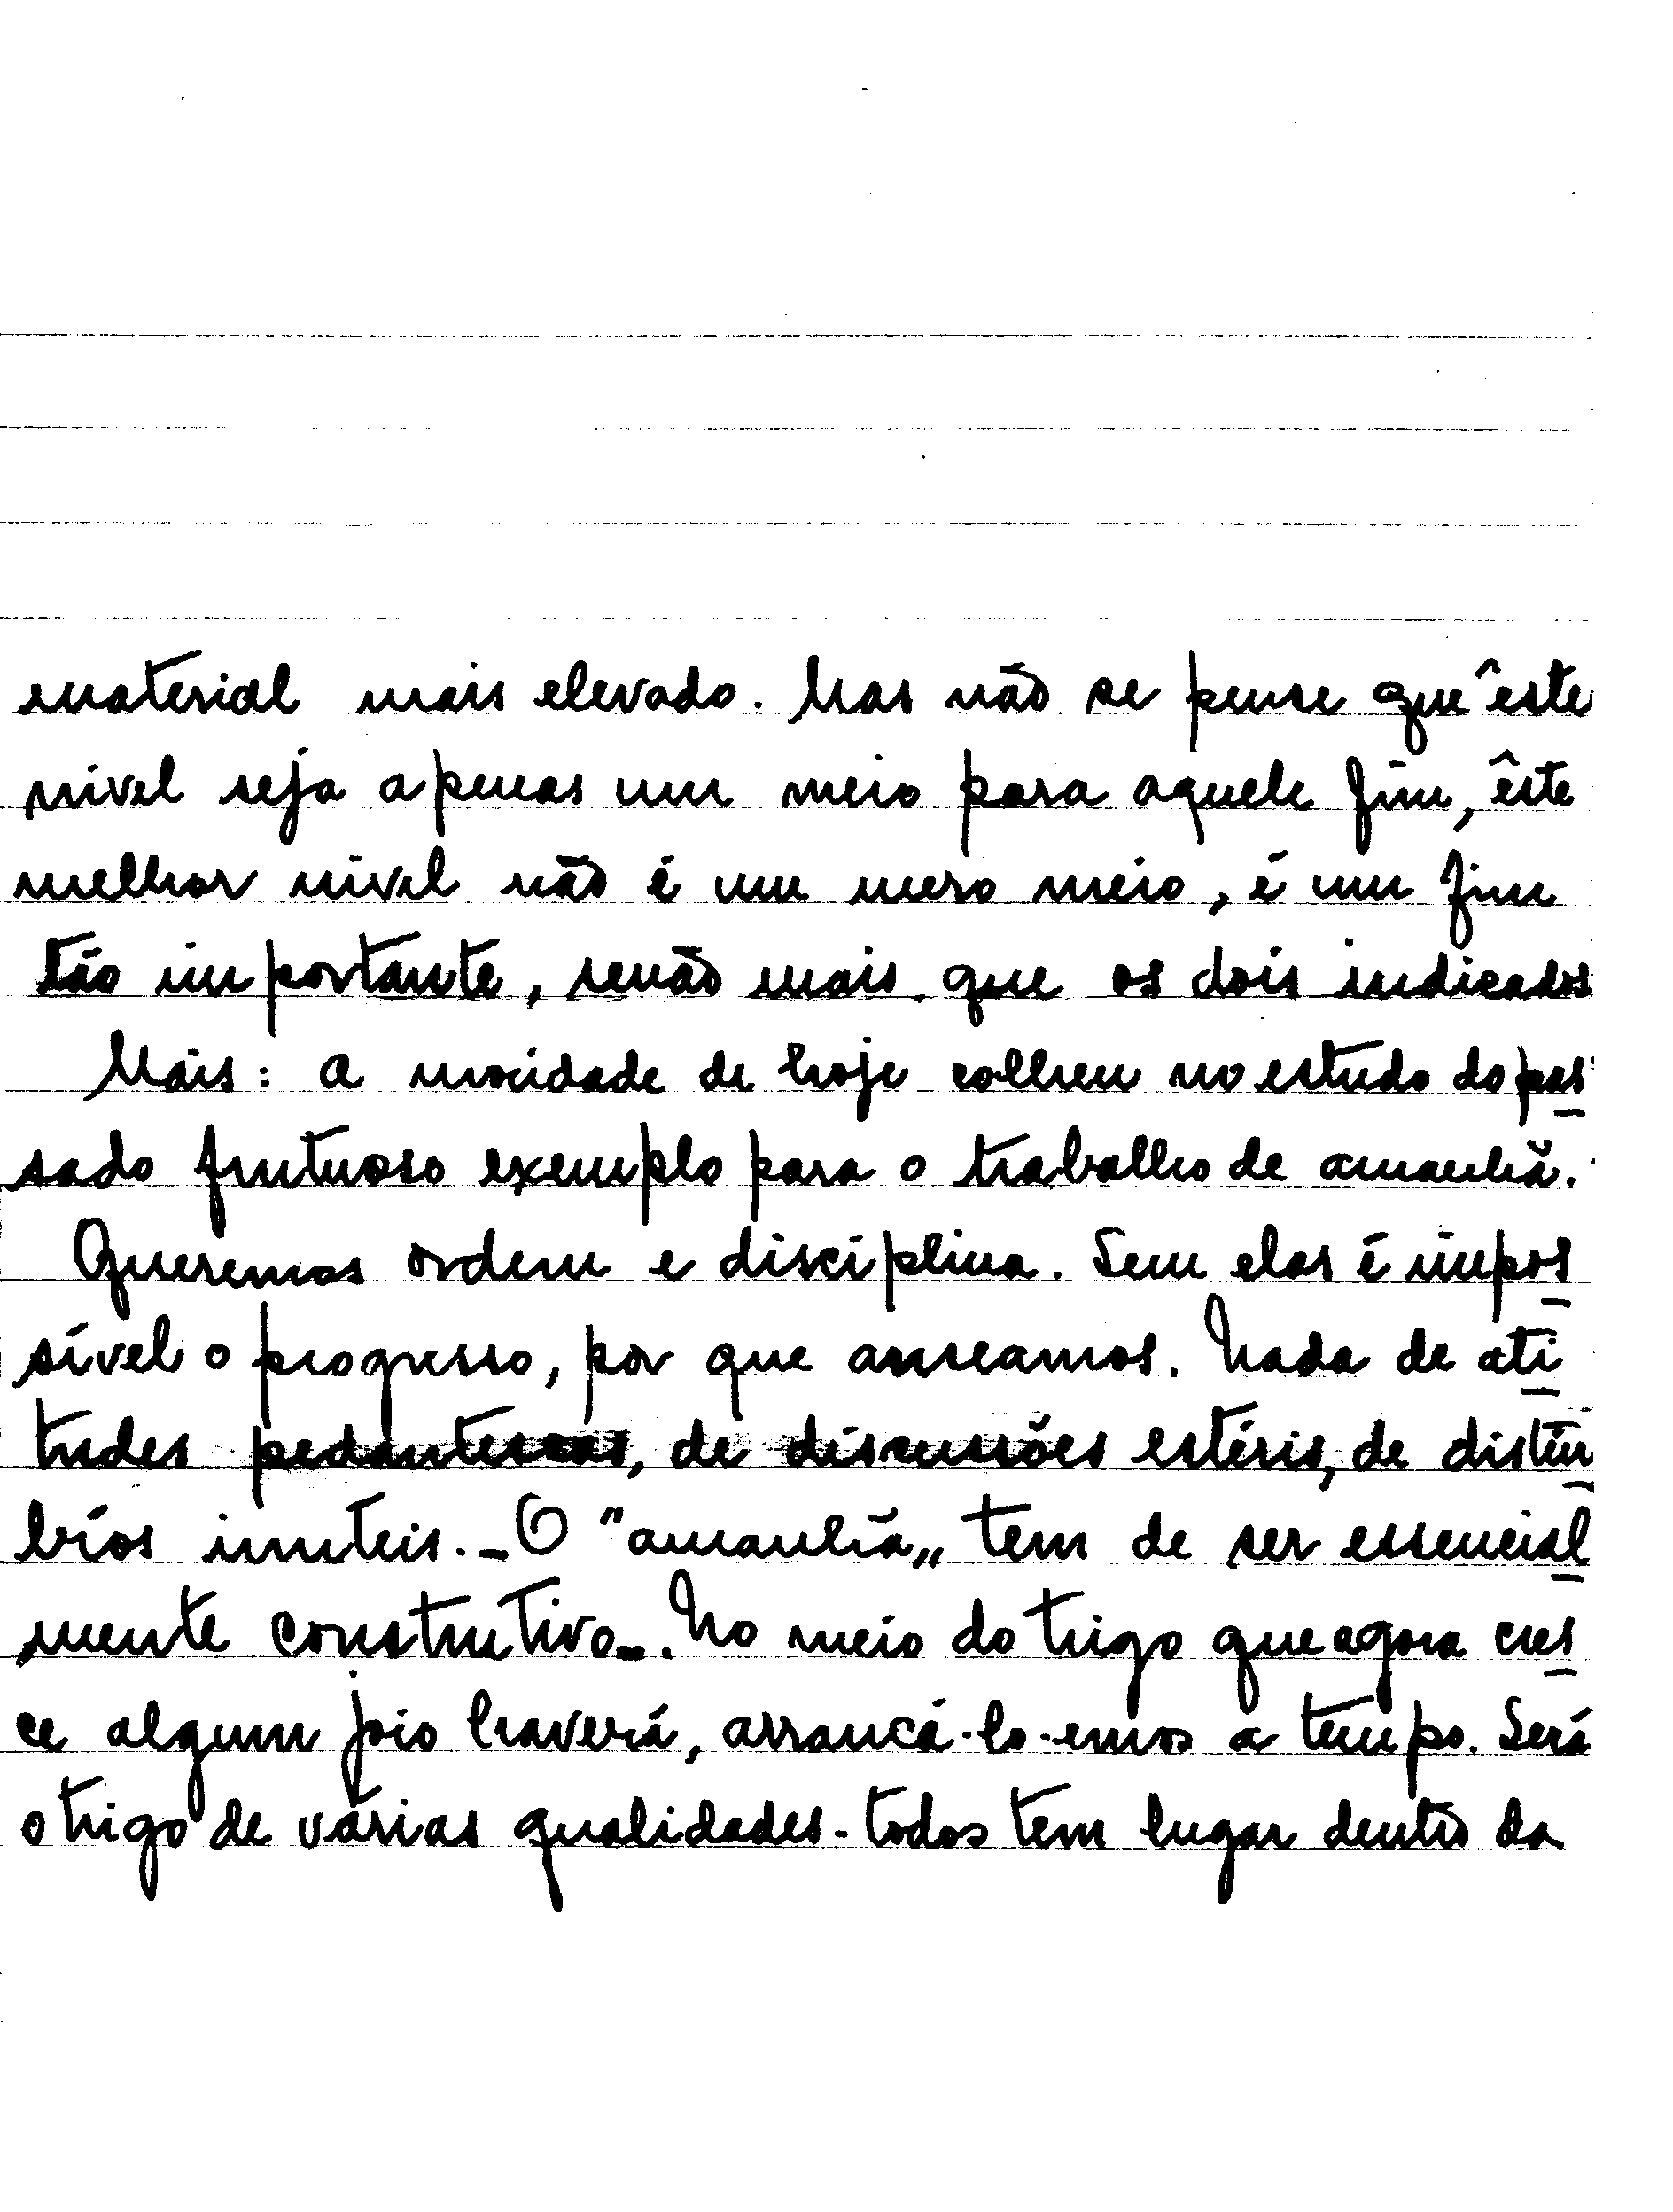 material mais elevado. Mas não se pense que êste
nivel seja apenas um meio para aquele fim, êste
melhor nivel não é um mero meio, é um fim
tão importante, senão mais, que os dois indicados
Mais: a mocidade de hoje colheu no estudo do pas
sado frutuoso exemplo para o trabalho de amanhã.
Queremos ordem e disciplina. Sem elas é impos
sível o progresso, por que anseamos. Nada de ati
tudes pedantescas, de discussões estéris, de distúr
bios inuteis. - O "amanhã„ tem de ser essencial
mente construtivo-. No meio do trigo que agora cres
ce algum joio haverá, arrancá-lo-emos a tempo. Será
o trigo de várias qualidades - todos tem lugar dentro da